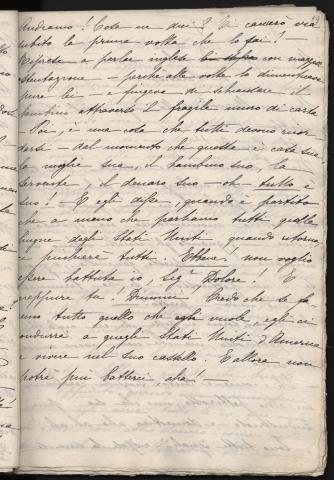 Andiamo! Cosa ne dici? Vi caccerò via
subito la prima volta che lo fai! —
Esfrete a parlar inglese con maggior
ostentazione — perché alle volte lo dimenticava
pure lei — e fingeva di schiaffare il
bambino attraverso il fragile muro di carta
— Poi, è una cosa che tutti devono ricor-
darsi — dal momento che questa è casa sua
la moglie sua, il bambino suo, la
servente, il denaro suo — oh — tutto è
suo! — E egli disse, quando è partito
che a meno che parliamo tutti quella
lingua degli Stati Uniti quando ritorna,
ci picchierà tutti. Ebbene, non voglio
essere battuta io, Sigª Dolore. E
neppure tu! Dunque Credo che se fa-
remo tutto quello che egli vuole, egli ci
condurrà a quegli Stati Uniti d'America
a vivere nel suo castello. E allora non
potrà più batterci, aha! —